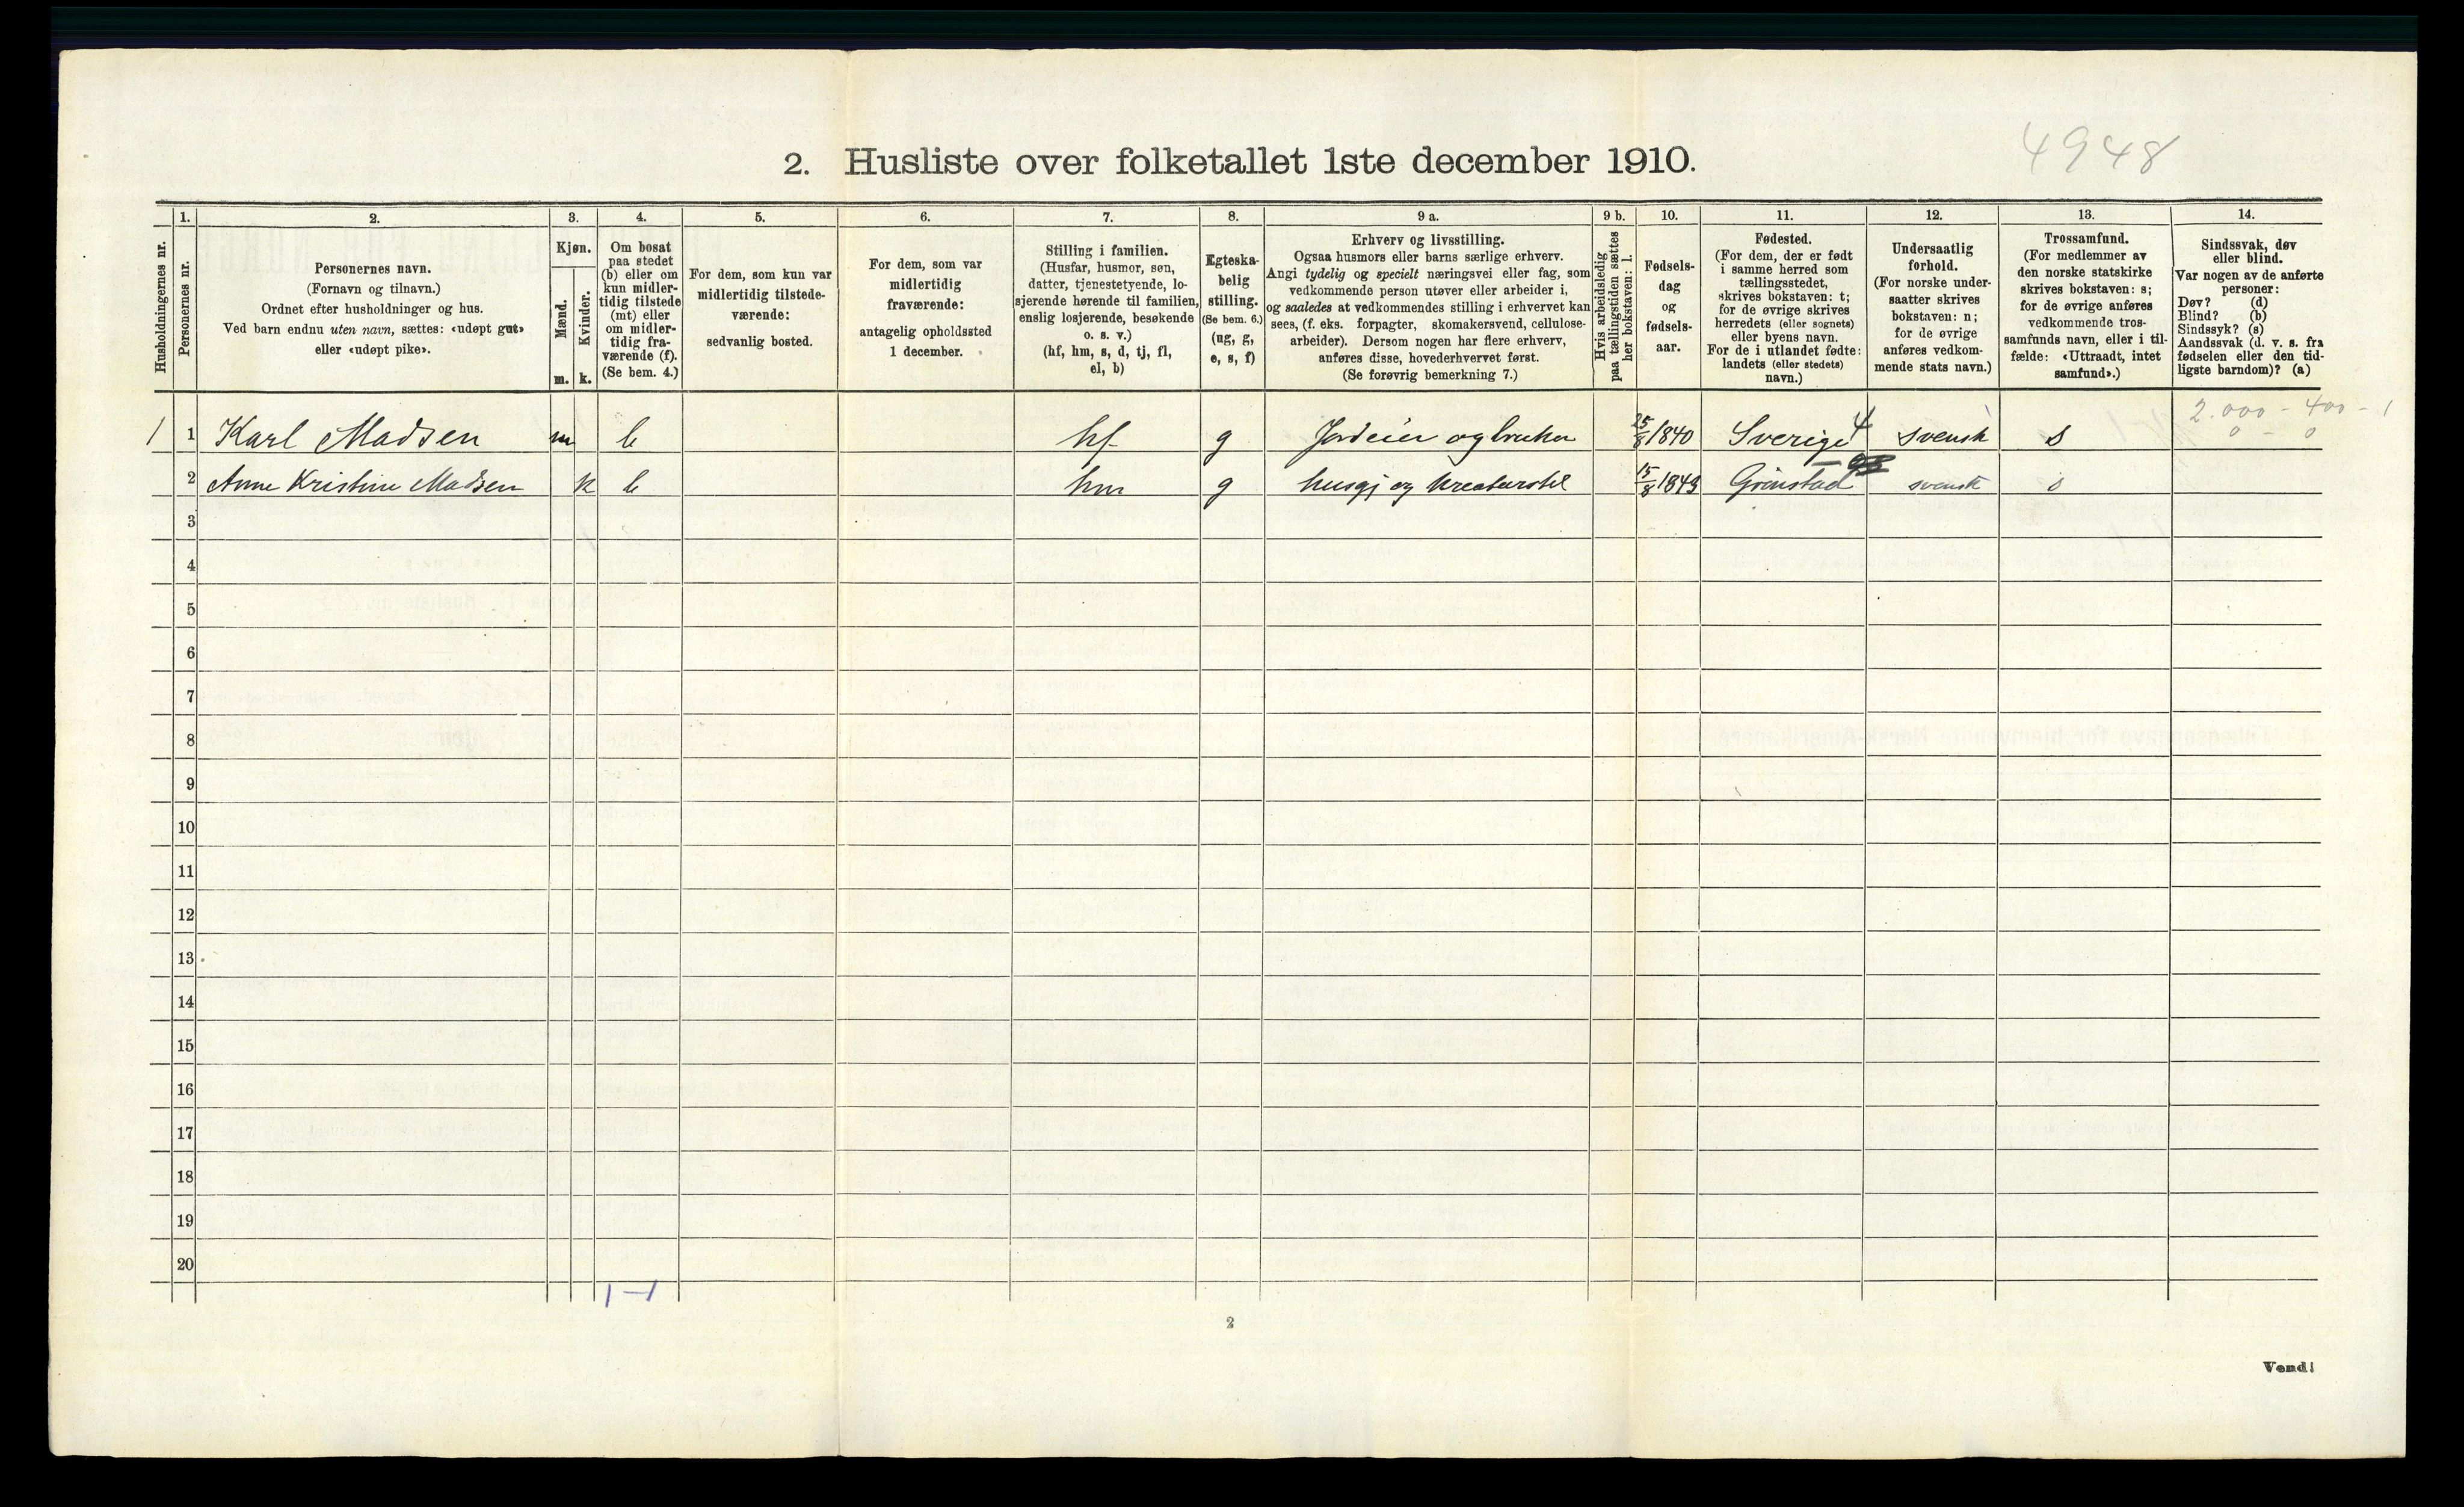 4948
2. Husliste over folketallet 1ste december 1910.
Husholdningernes nr.
1.
Personernes nr.
2.
Personernes navn.
(Fornavn og tilnavn.)
Ordnet efter husholdninger og hus.
Ved barn endnu uten navn, sættes: «udøpt gut»
eller «udøpt pike».
3.
Kjøn.
Mænd.
m.
Kvinder.
k.
4.
Om bosat
paa stedet
(b) eller om
kun midler-
tidig tilstede
(mt) eller
om midler-
tidig fra-
værende (f).
(Se bem. 4.)
5.
For dem, som kun var
midlertidig tilstede-
værende:
sedvanlig bosted.
6.
For dem, som var
midlertidig
fraværende:
antagelig opholdssted
1 december.
7.
Stilling i familien.
(Husfar, husmor, søn,
datter, tjenestetyende, lo-
sjerende hørende til familien,
enslig losjerende, besøkende
o. s. v.)
(hf, hm, s, d, tj, fl,
el, b)
8.
Egteska-
belig
stilling.
(Se bem. 6.)
(ug, g,
e, s, f)
9 a.
Erhverv og livsstilling.
Ogsaa husmors eller barns særlige erhverv.
Angi tydelig og specielt næringsvei eller fag, som
vedkommende person utøver eller arbeider i,
og saaledes at vedkommendes stilling i erhvervet kan
sees, (f. eks. forpagter, skomakersvend, cellulose-
arbeider). Dersom nogen har flere erhverv,
anføres disse, hovederhvervet først.
(Se forøvrig bemerkning 7.)
9 b.
Hvis arbeidsledig
paa tællingstiden sættes
her bokstaven: l.
10.
Fødsels-
dag
og
fødsels-
aar.
11.
Fødested.
(For dem, der er født
i samme herred som
tællingsstedet,
skrives bokstaven: t;
for de øvrige skrives
herredets (eller sognets)
eller byens navn.
For de i utlandet fødte:
landets (eller stedets)
navn.)
12.
Undersaatlig
forhold.
(For norske under-
saatter skrives
bokstaven: n;
for de øvrige
anføres vedkom-
mende stats navn.)
13.
Trossamfund.
(For medlemmer av
den norske statskirke
skrives bokstaven: s;
for de øvrige anføres
vedkommende tros-
samfunds navn, eller i til-
fælde: «Uttraadt, intet
samfund».)
14.
Sindssvak, døv
eller blind.
Var nogen av de anførte
personer:
Døv? (d)
Blind? (b)
Sindssyk? (s)
Aandssvak (d. v. s. fra
fødselen eller den tid-
ligste barndom)? (a)
2.000 - 400 - 1
0 - 0
1 1 Karl Madsen m b hf g Jordeier og bruker 25/8 1840 Sverige 4 svensk s
2 Anne Kristine Madsen k b hm g husgj og kreaturstel 15/8 1843 svensk s
3
4
5
6
7
8
9
10
11
12
13
14
15
16
17
18
19
20
1-1
2
Vend!